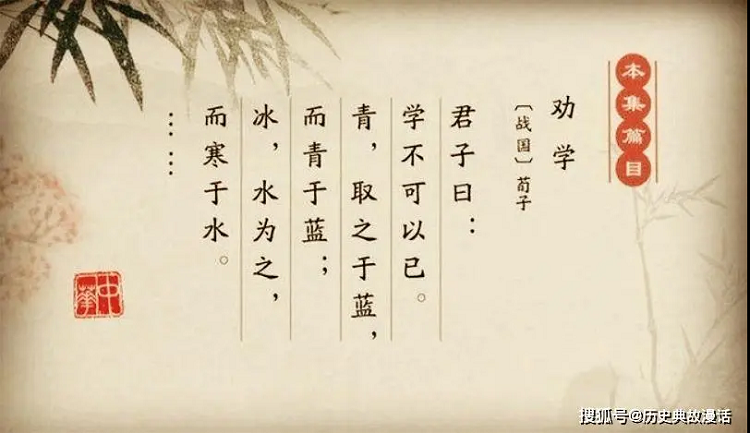 本集篇目
劝学
〔战国〕荀子
君子曰：
学不可以已。
青，取之于蓝，
而青于蓝；
冰，水为之，
而寒于水。
……
中华
搜狐号@历史典故漫话